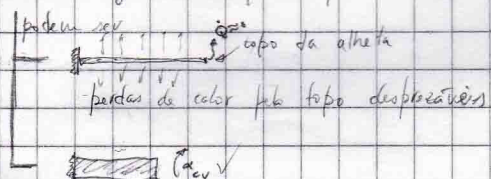 podem ser
Q̇≈0
topo da alheta
perdas de calor pelo topo desprezáveis
α_cv ✓